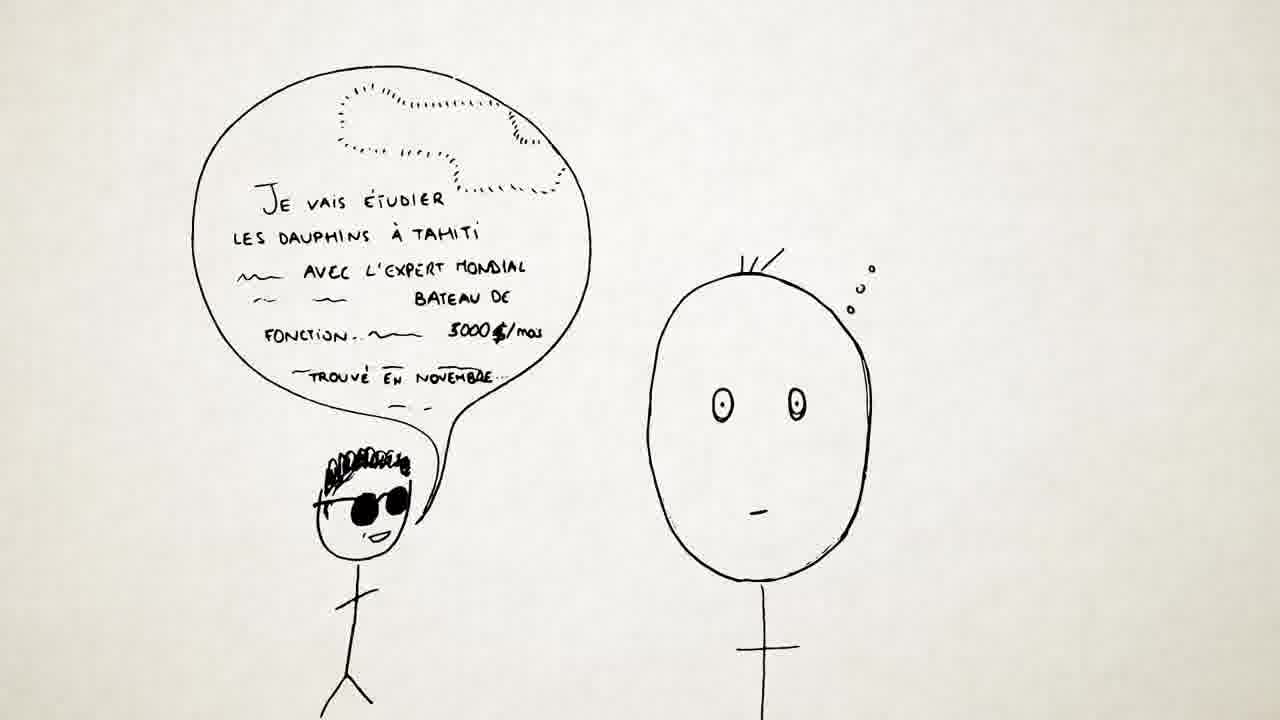 JE VAIS ÉTUDIER
LES DAUPHINS À TAHITI
AVEC L'EXPERT MONDIAL
BATEAU DE
FONCTION... 5000 $/mois
TROUVÉ EN NOVEMBRE...